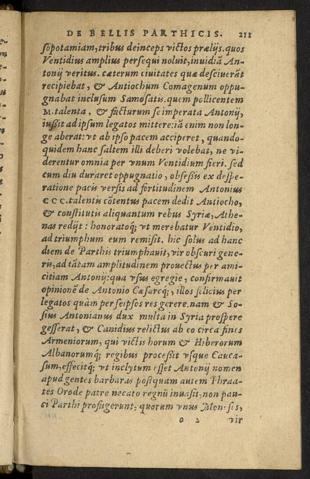 DE BELLIS PARTHICIS. 211
sopotamiam, tribus deinceps victos prælijs. quos
Ventidius amplius persequi noluit, inuidiā An-
tonij veritus. cæterum ciuitates quæ desciuerāt
recipiebat, & Antiochum Comagenum oppu-
gnabat inclusum Samosatis. quem pollicentem
M. talenta, & facturum se imperata Antonij,
iussit ad ipsum legatos mittere: iā enim non lon-
ge aberat: vt ab ipso pacem acciperet, quando-
quidem hanc saltem illi deberi volebat, ne vi-
derentur omnia per vnum Ventidium fieri. sed
cum diu duraret oppugnatio, obsessis ex despe-
ratione pacis versis ad fortitudinem Antonius
CCC. talentis cōtentus pacem dedit Antiocho,
& constitutis aliquantum rebus Syriæ, Athe-
nas redijt: honoratoq; vt merebatur Ventidio,
ad triumphum eum remisit. hic solus ad hanc
diem de Parthis triumphauit, vir obscuri gene-
ris, ad tātam amplitudinem prouectus per ami-
citiam Antonij: qua vsus egregie, confirmauit
opinionē de Antonio Cæsarēq; illos felicius per
legatos quàm per seipsos res gerere. nam & So-
sius Antonianus dux multa in Syria prospere
gesserat, & Canidius relictus ab eo circa fines
Armeniorum, qui victis horum & Hiberorum
Albanorumq; regibus processit vsque Cauca-
sum, effecitq; vt inclytum esset Antonij nomen
apud gentes barbaras postquam autem Phraa-
tes Orode patre necato regnū inuasit, non pau-
ci Parthi profugerunt: quorum vnus Monęses,
o 2 vir